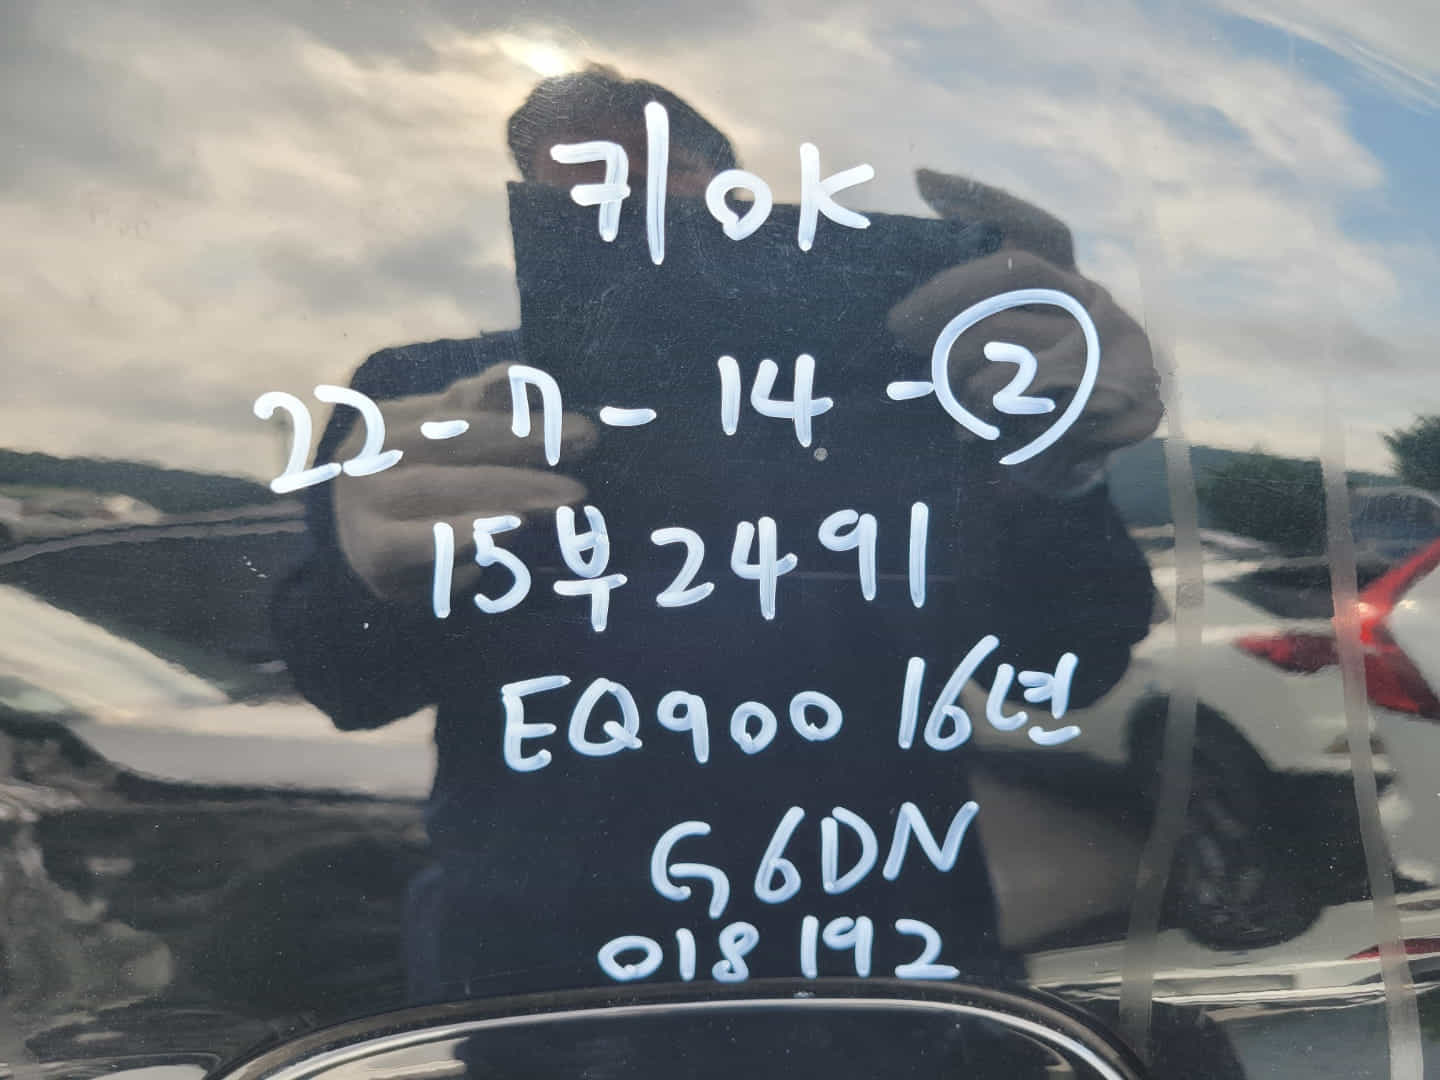 키 OK
22-7-14-②
15부2491
EQ900 16년
G6DN
018192